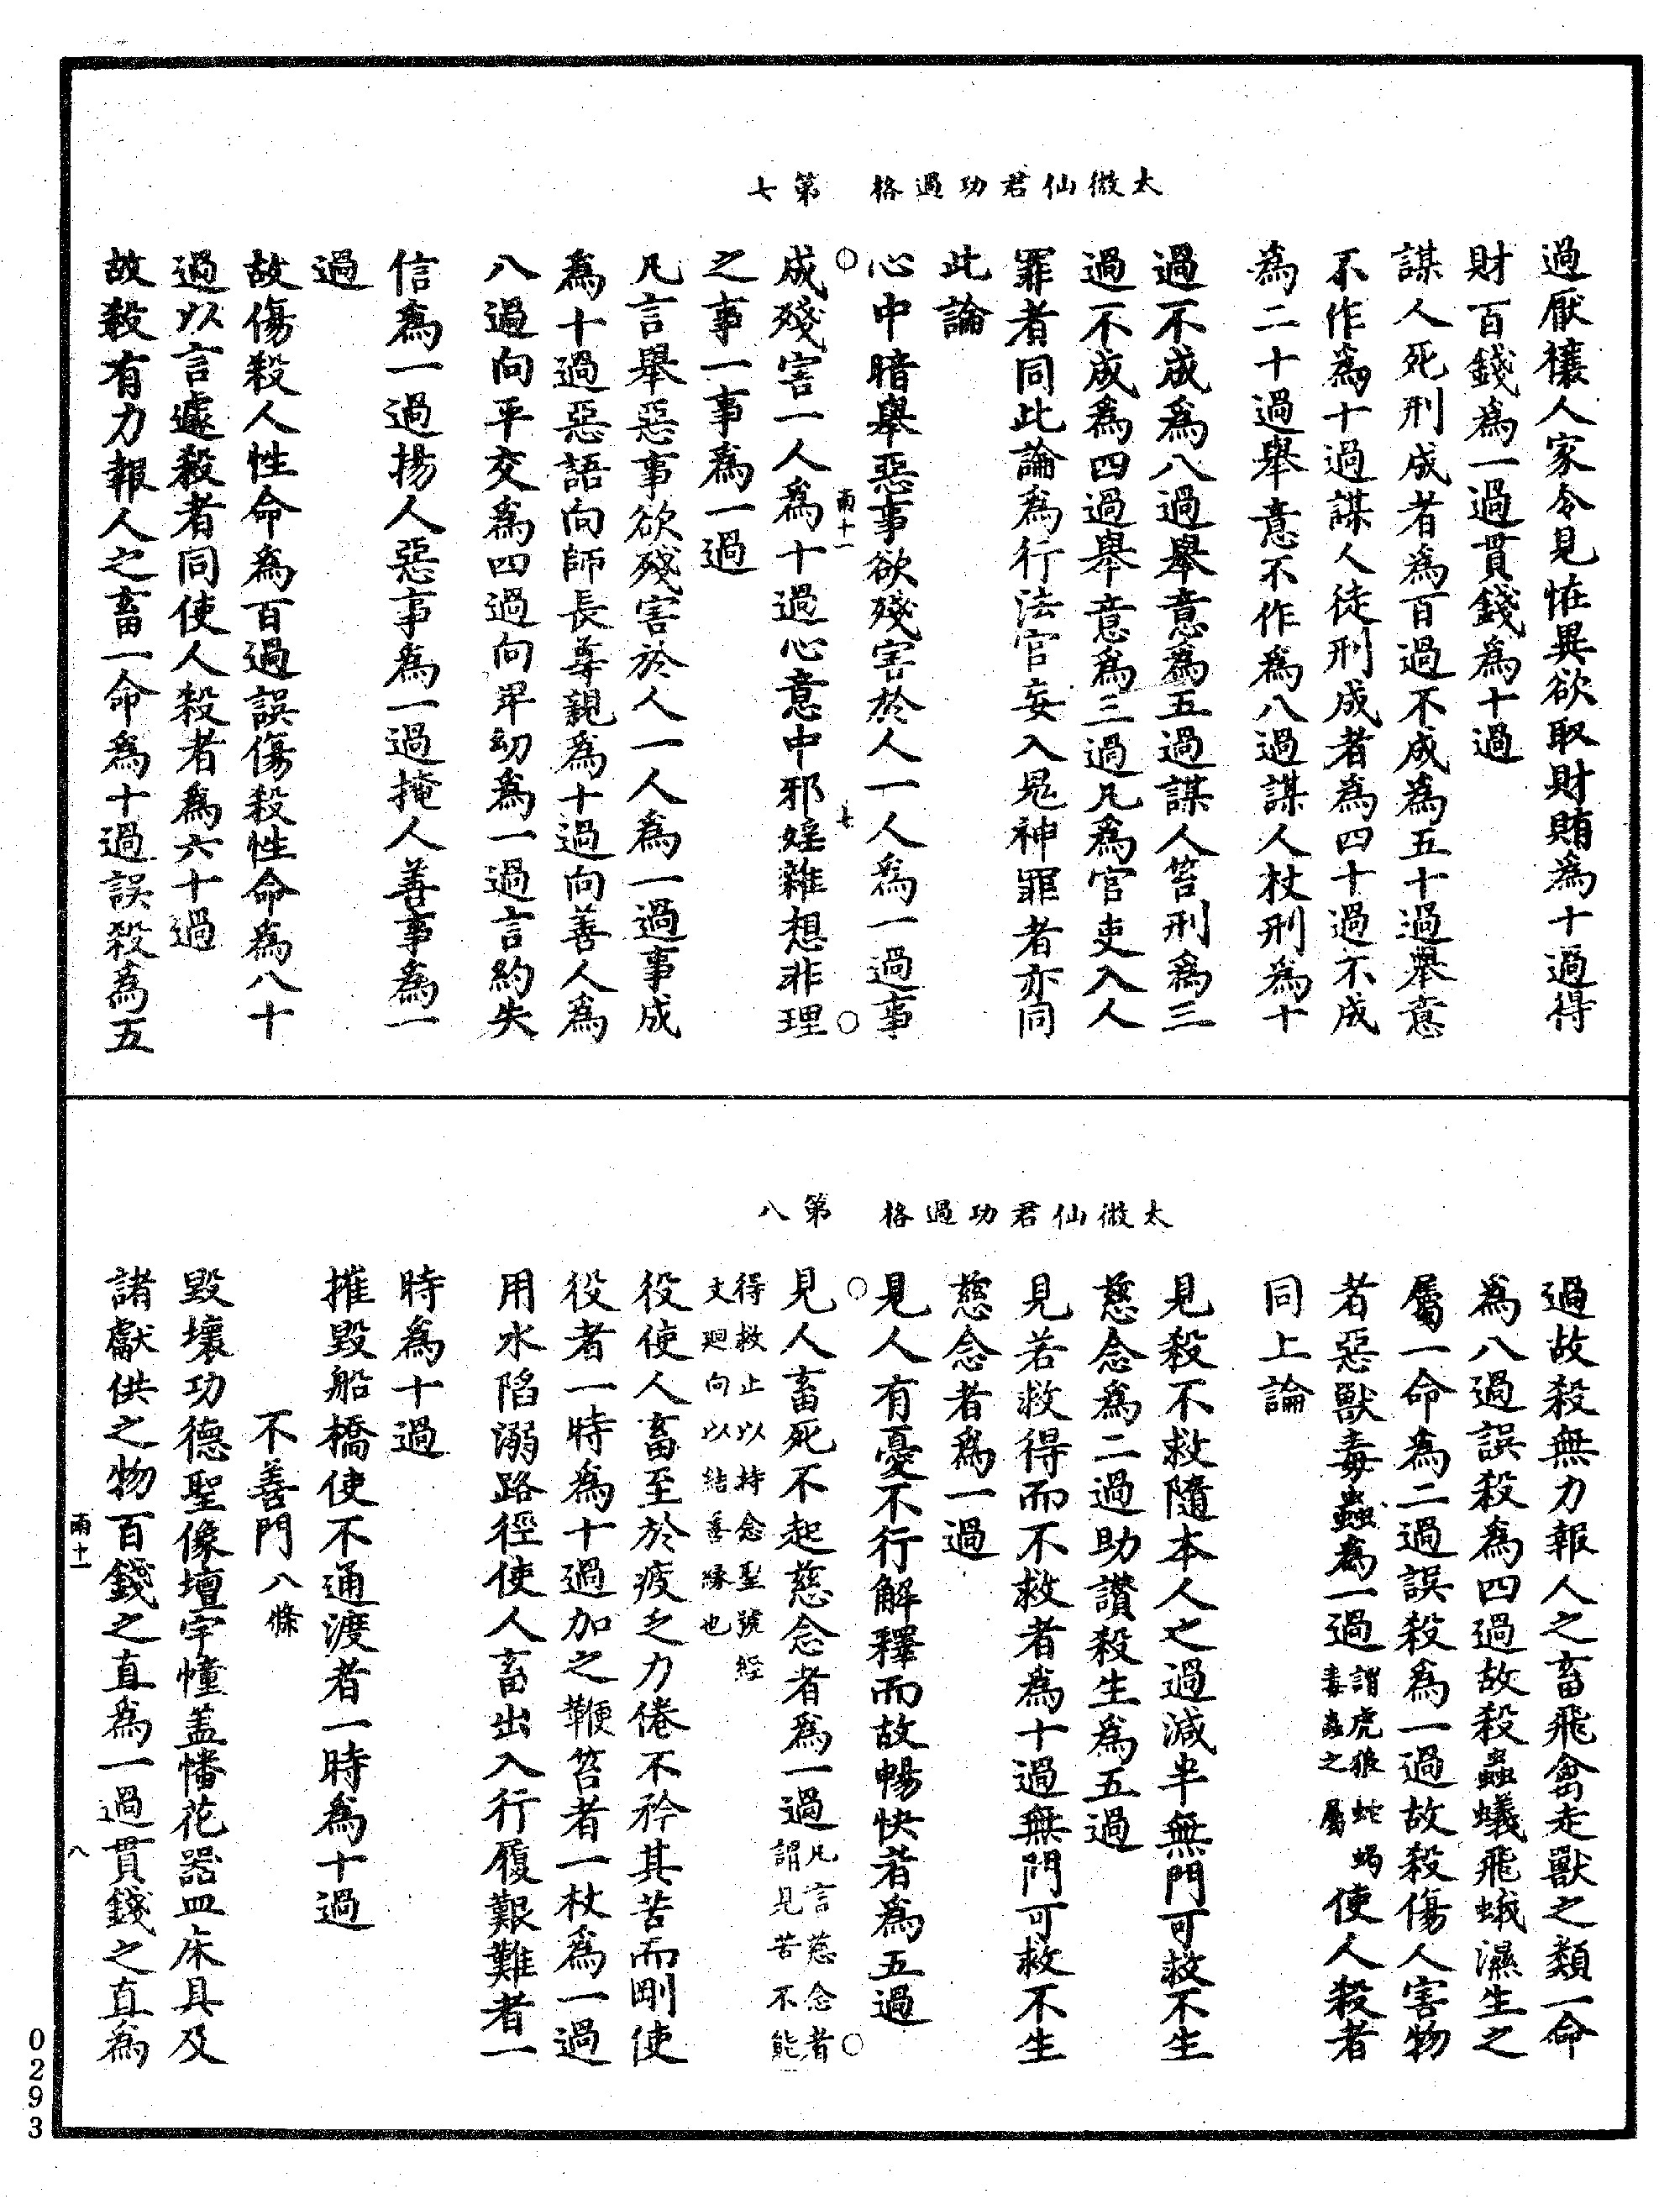 太微仙君功過格　第七
過厭禳人家令見怪異欲取財賄為十過得
財百錢為一過貫錢為十過
謀人死刑成者為百過不成為五十過舉意
不作為十過謀人徒刑成者為四十過不成
為二十過舉意不作為八過謀人杖刑為十
過不成為八過舉意為五過謀人笞刑為三
過不成為四過舉意為三過凡為官吏入人
罪者同此論為行法官妄入鬼神罪者亦同
此論
心中暗舉惡事欲殘害於人一人為一過事
雨十一　七
成殘害一人為十過心意中邪婬雜想非理
之事一事為一過
凡言舉惡事欲殘害於人一人為一過事成
為十過惡語向師長尊親為十過向善人為
八過向平交為四過向卑幼為一過言約失
信為一過揚人惡事為一過掩人善事為一
過
故傷殺人性命為百過誤傷殺性命為八十
過以言遽殺者同使人殺者為六十過
故殺有力報人之畜一命為十過誤殺為五
太微仙君功過格　第八
過故殺無力報人之畜飛禽走獸之類一命
為八過誤殺為四過故殺蟲蟻飛蛾濕生之
屬一命為二過誤殺為一過故殺傷人害物
者惡獸毒蟲為一過謂虎狼蛇蝎毒蟲之屬使人殺者
同上論
見殺不救隨本人之過減半無門可救不生
慈念為二過助讚殺生為五過
見若救得而不救者為十過無門可救不生
慈念者為一過
見人有憂不行解釋而故暢快者為五過
見人畜死不起慈念者為一過凡言慈念者謂見苦不能
得救止以持念聖號經文廻向以結善緣也
役使人畜至於疲乏力倦不矜其苦而剛使
役者一時為十過加之鞭笞者一杖為一過
用水陷溺路徑使人畜出入行履艱難者一
時為十過
摧毀船橋使不通渡者一時為十過
不善門八條
毀壞功德聖像壇宇幢蓋幡花器皿床具及
諸獻供之物百錢之直為一過貫錢之直為
雨十一　八
0293